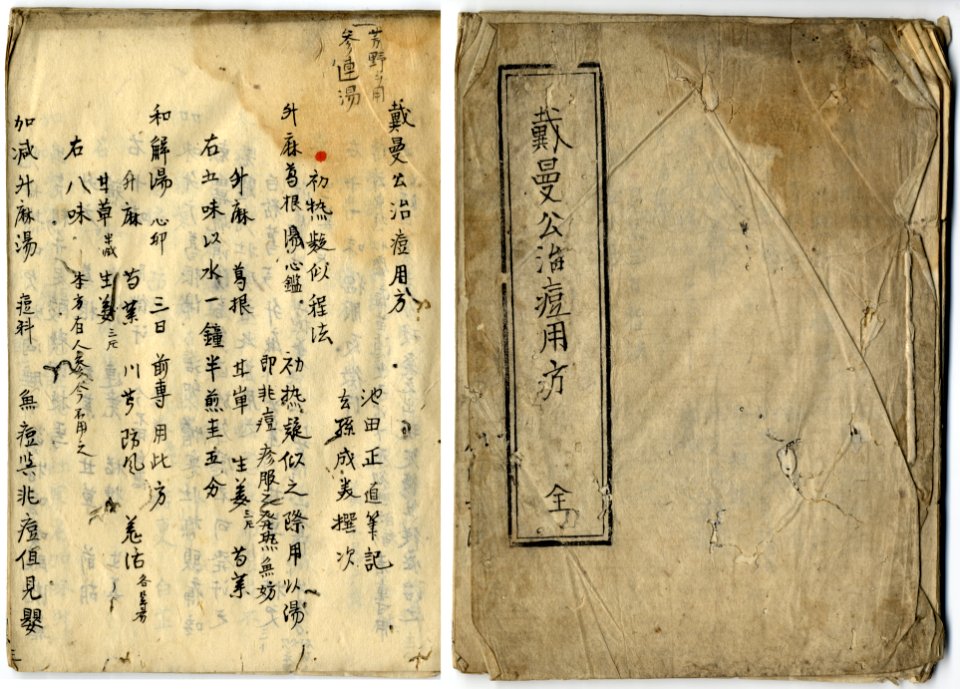 戴曼公治痘用方
全
芳野
參連湯
戴曼公治痘用方
池田正直筆記
玄孫成美撰次
初热疑似程法
升麻葛根湯 心鑑 初热疑似之際用此湯
即非痘疹服之發热無妨
升麻 葛根 甘草 生姜 三片 芍藥
右五味以水一鐘半煎至五分
和解湯 心印 三日前專用此方
升麻 芍藥 川芎 防風 羌活
甘草 半減 生姜 三片
右八味 本方有人參今不用之
加減升麻湯 痘科 無痘與非痘值見嬰